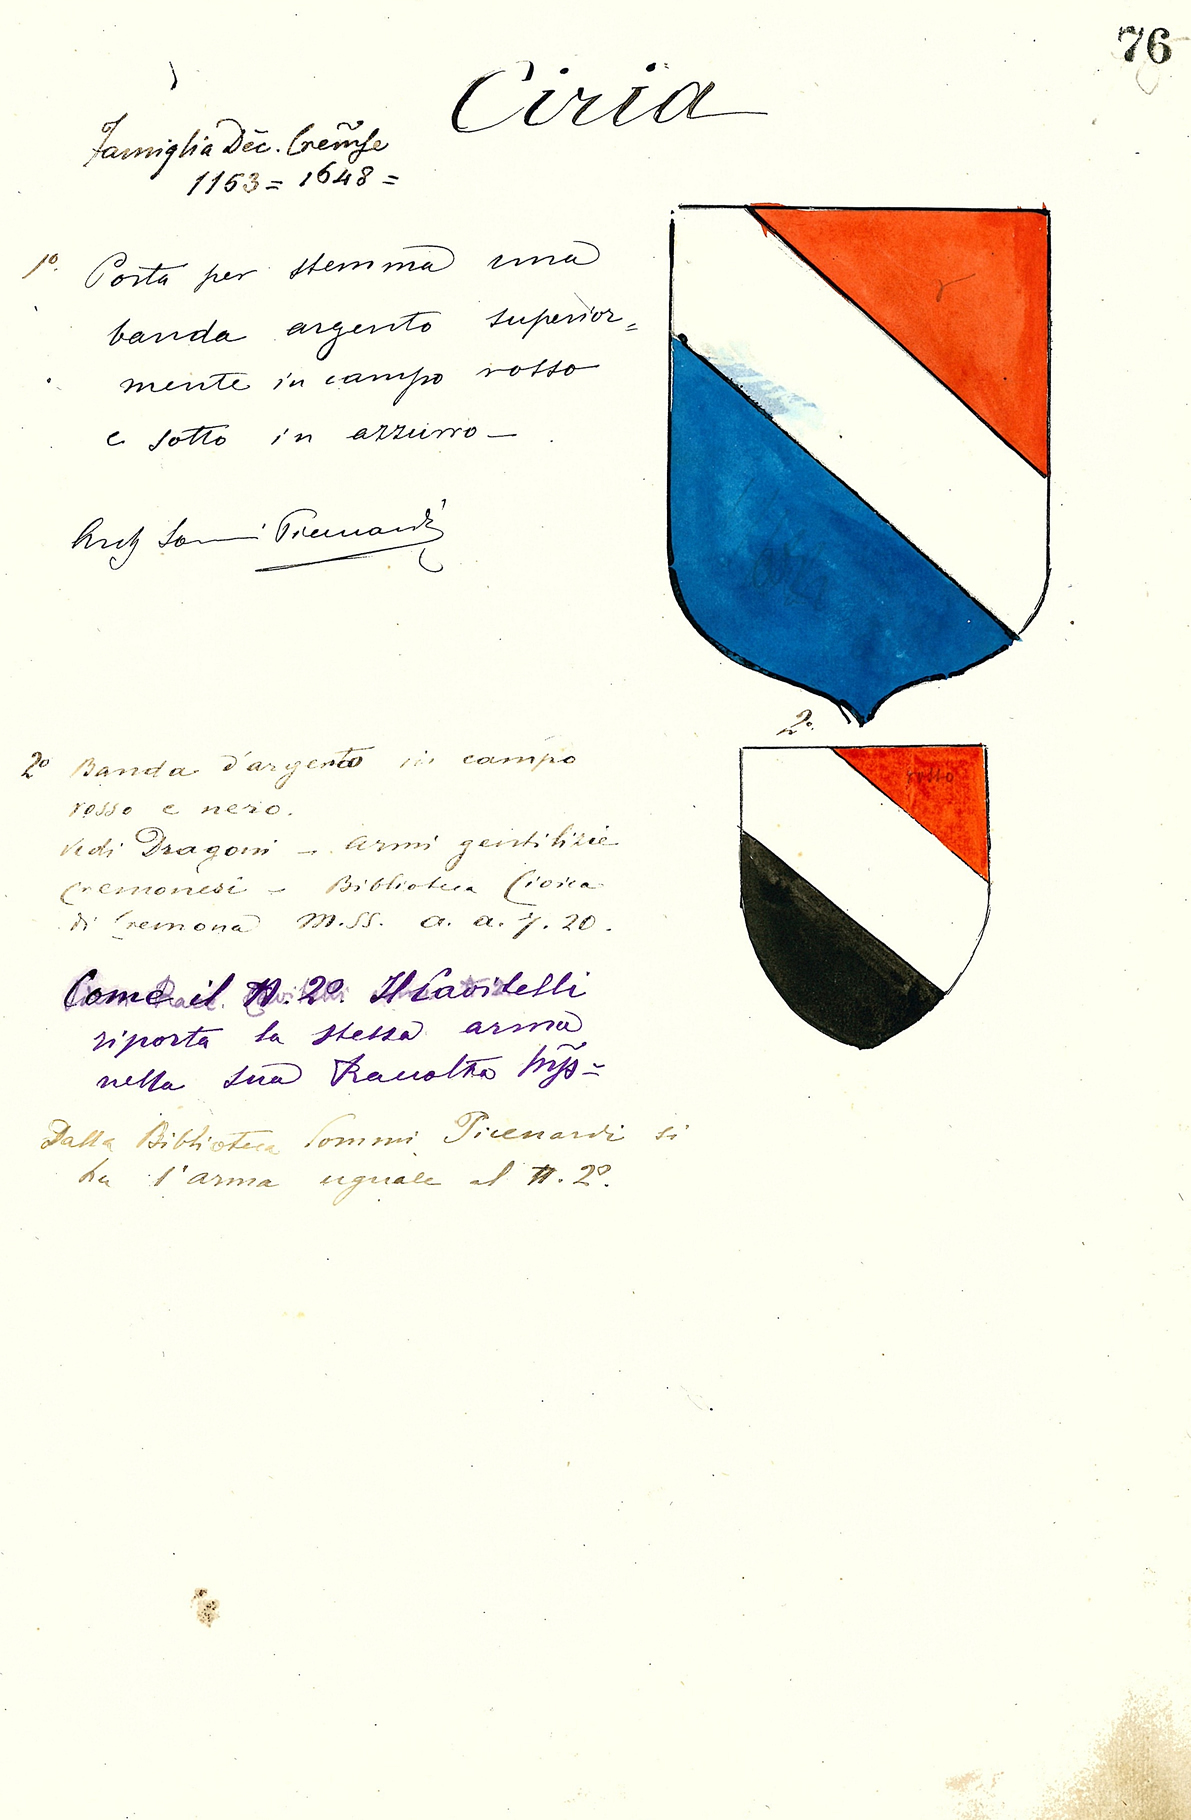 76
Ciria
Famiglia Dec. Cremse
1163 = 1648 =
1º. Porta per stemma una
banda argento superior=
mente in campo rosso
e sotto in azzurro —
Arch Sommi Picenardi
2º.
2º Banda d'argento in campo
rosso e nero.
rosso
Vedi Dragoni — Armi gentilizie
Cremonesi — Biblioteca Civica
di Cremona M.SS. a. a. 7. 20.
Come il N. 2º. Il Cavitelli
riporta la stessa arma
nella sua Raccolta Mss=
Dalla Biblioteca Sommi Picenardi si
ha l'arma uguale al N. 2º.